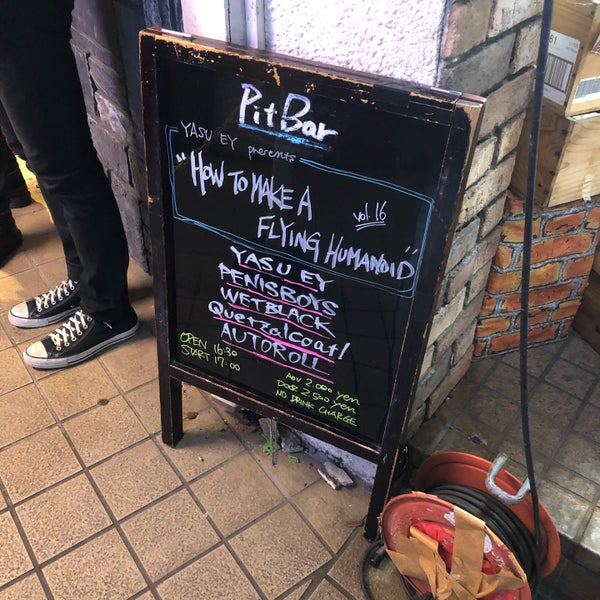 Pit Bar
YASU EY pherents
"HOW TO MAKE A
FLYING HUMANOID"
vol. 16
YASU EY
PENISBOYS
WETBLACK
Quetzalcoatl
AUTOROLL
OPEN 16:30
START 17:00
ADV 2.000 yen
DOOR 2.500 yen
NO DRINK CHARGE